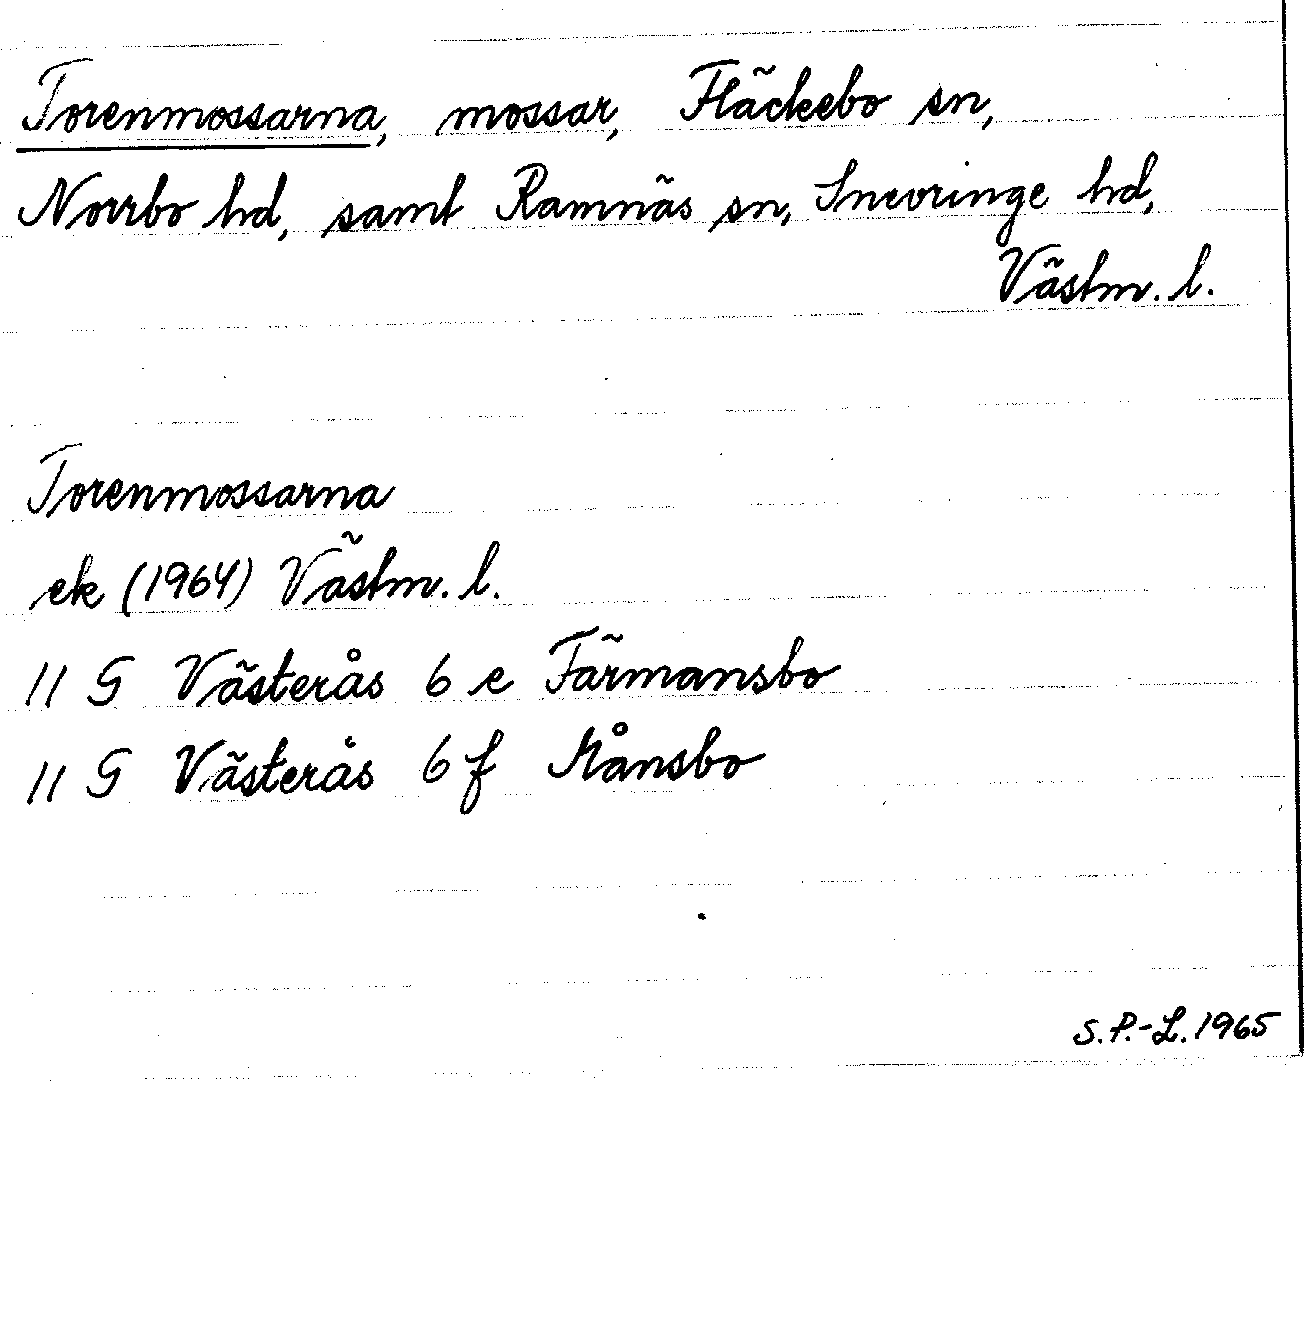 Torenmossarna, mossar, Fläckebo sn,
Norrbo hd, samt Ramnäs sn, Snevringe hd,
Västm. l.
Torenmossarna
ek (1964) Västm. l.
11 G Västerås 6 e Färmansbo
11 G Västerås 6 f Månsbo
S.P.-L. 1965